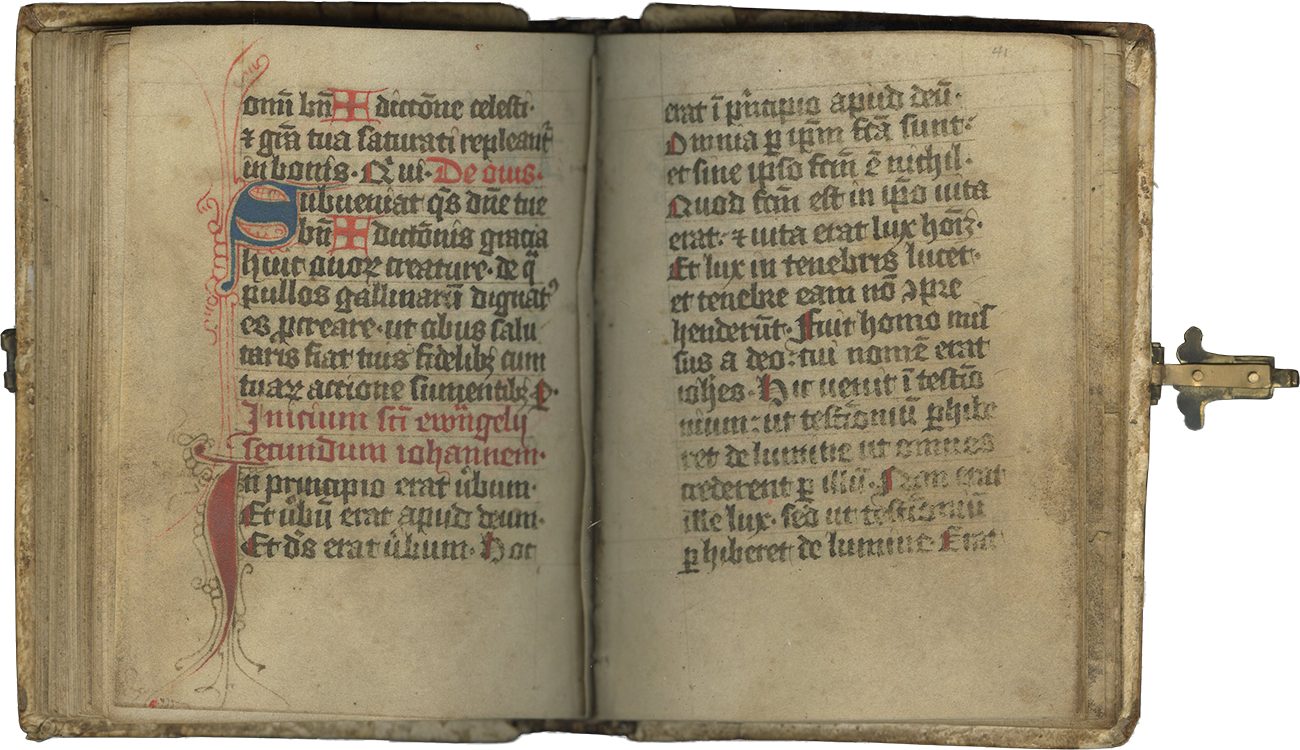 om̄ bn̄✠dictōne celesti·
⁊ gr̄a tua saturati repleant᷑
in bonis· Qui· De ouis·
Subueniat q̄s dn̄e tue
bn̄✠dictōnis gracia
huic ouoꝝ creature· de q̄
pullos gallinarū dignatꝰ
es ꝓcreare· ut cibus salu
taris fiat tuis fidelibꝫ cum
tuaꝝ accione sumentibꝫ P·
Inicium sc̄i ewāgelij
secundum iohannem·
In principio erat ûbum·
Et ûbū erat apud deum·
Et ds̄ erat ûbum· Hoc
41
erat ī pͥncipio apud deū·
Omnia ꝑ ip̄m fc̄a sunt·
et sine ipso fcm̄ ē nichil·
Quod fcm̄ est in ip̄o uita
erat· ⁊ uita erat lux hoīꝫ·
Et lux in tenebris lucet·
et tenebre eam nō ꝯpre
henderūt· Fuit homo mis
sus a deo: cui nomē erat
ioh̄es· Hic uenit ī testīo
nium: ut testīoniū ꝑhibe
ret de lumine ut omnes
crederent ꝑ illū· Non erat
ille lux· sed ut testīoniū
ꝑhiberet de lumine· Erat